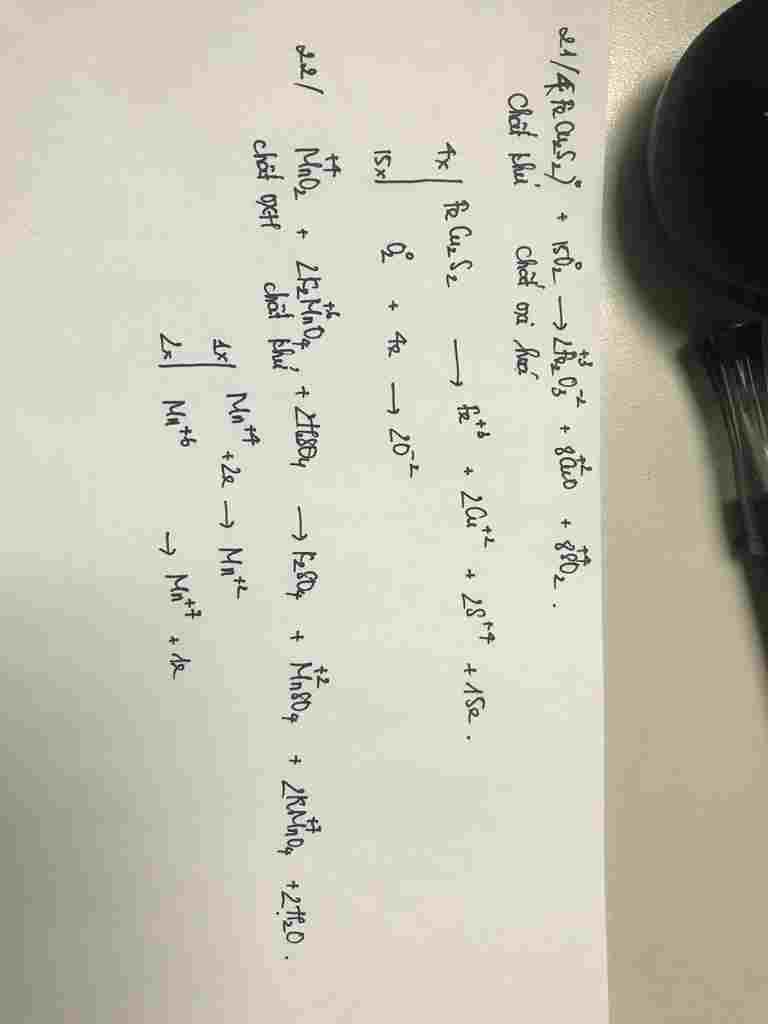 21/ 4(FeCu₂S₂)⁰ + 15O₂⁰ → 2Fe₂⁺³O₃⁻² + 8Cu⁺²O + 8S⁺⁴O₂.
chất khử chất oxi hoá
4x| FeCu₂S₂ → Fe⁺³ + 2Cu⁺² + 2S⁺⁴ + 15e.
15x| O₂⁰ + 4e → 2O⁻²
22/ Mn⁺⁴O₂ + 2K₂Mn⁺⁶O₄ + 2H₂SO₄ → K₂SO₄ + Mn⁺²SO₄ + 2KMn⁺⁷O₄ + 2H₂O.
chất OXH chất khử
1x| Mn⁺⁴ + 2e → Mn⁺²
2x| Mn⁺⁶ → Mn⁺⁷ + 1e